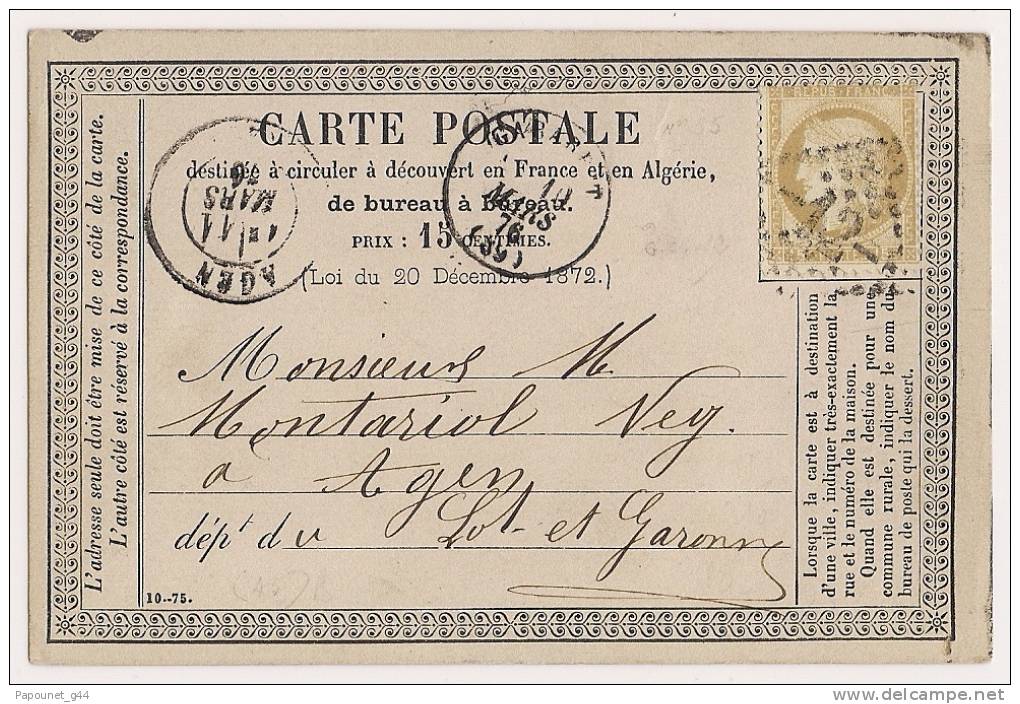 CARTE POSTALE
destinée à circuler à découvert en France et en Algérie,
de bureau à bureau.
PRIX : 15 CENTIMES.
(Loi du 20 Décembre 1872.)
REPUB FRANC
AGEN
11
MARS
76
10
MARS
76
(39)
Monsieur M
Montariol Neg.
a Agen
dépt du Lot et Garonne
L'adresse seule doit être mise de ce côté de la carte.
L'autre côté est réservé à la correspondance.
Lorsque la carte est à destination
d'une ville, indiquer très-exactement la
rue et le numéro de la maison.
Quand elle est destinée pour une
commune rurale, indiquer le nom du
bureau de poste qui la dessert.
10--75.
Papounet_g44
delcampe.net